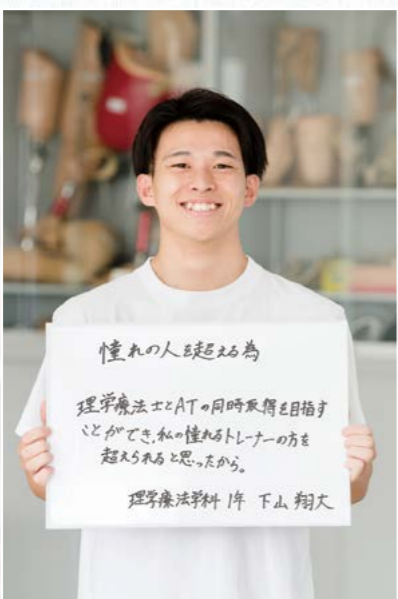 憧れの人を超える為
理学療法士とATの同時取得を目指す
ことができ、私の憧れるトレーナーの方を
超えられると思ったから。
理学療法学科 1年 下山 翔大